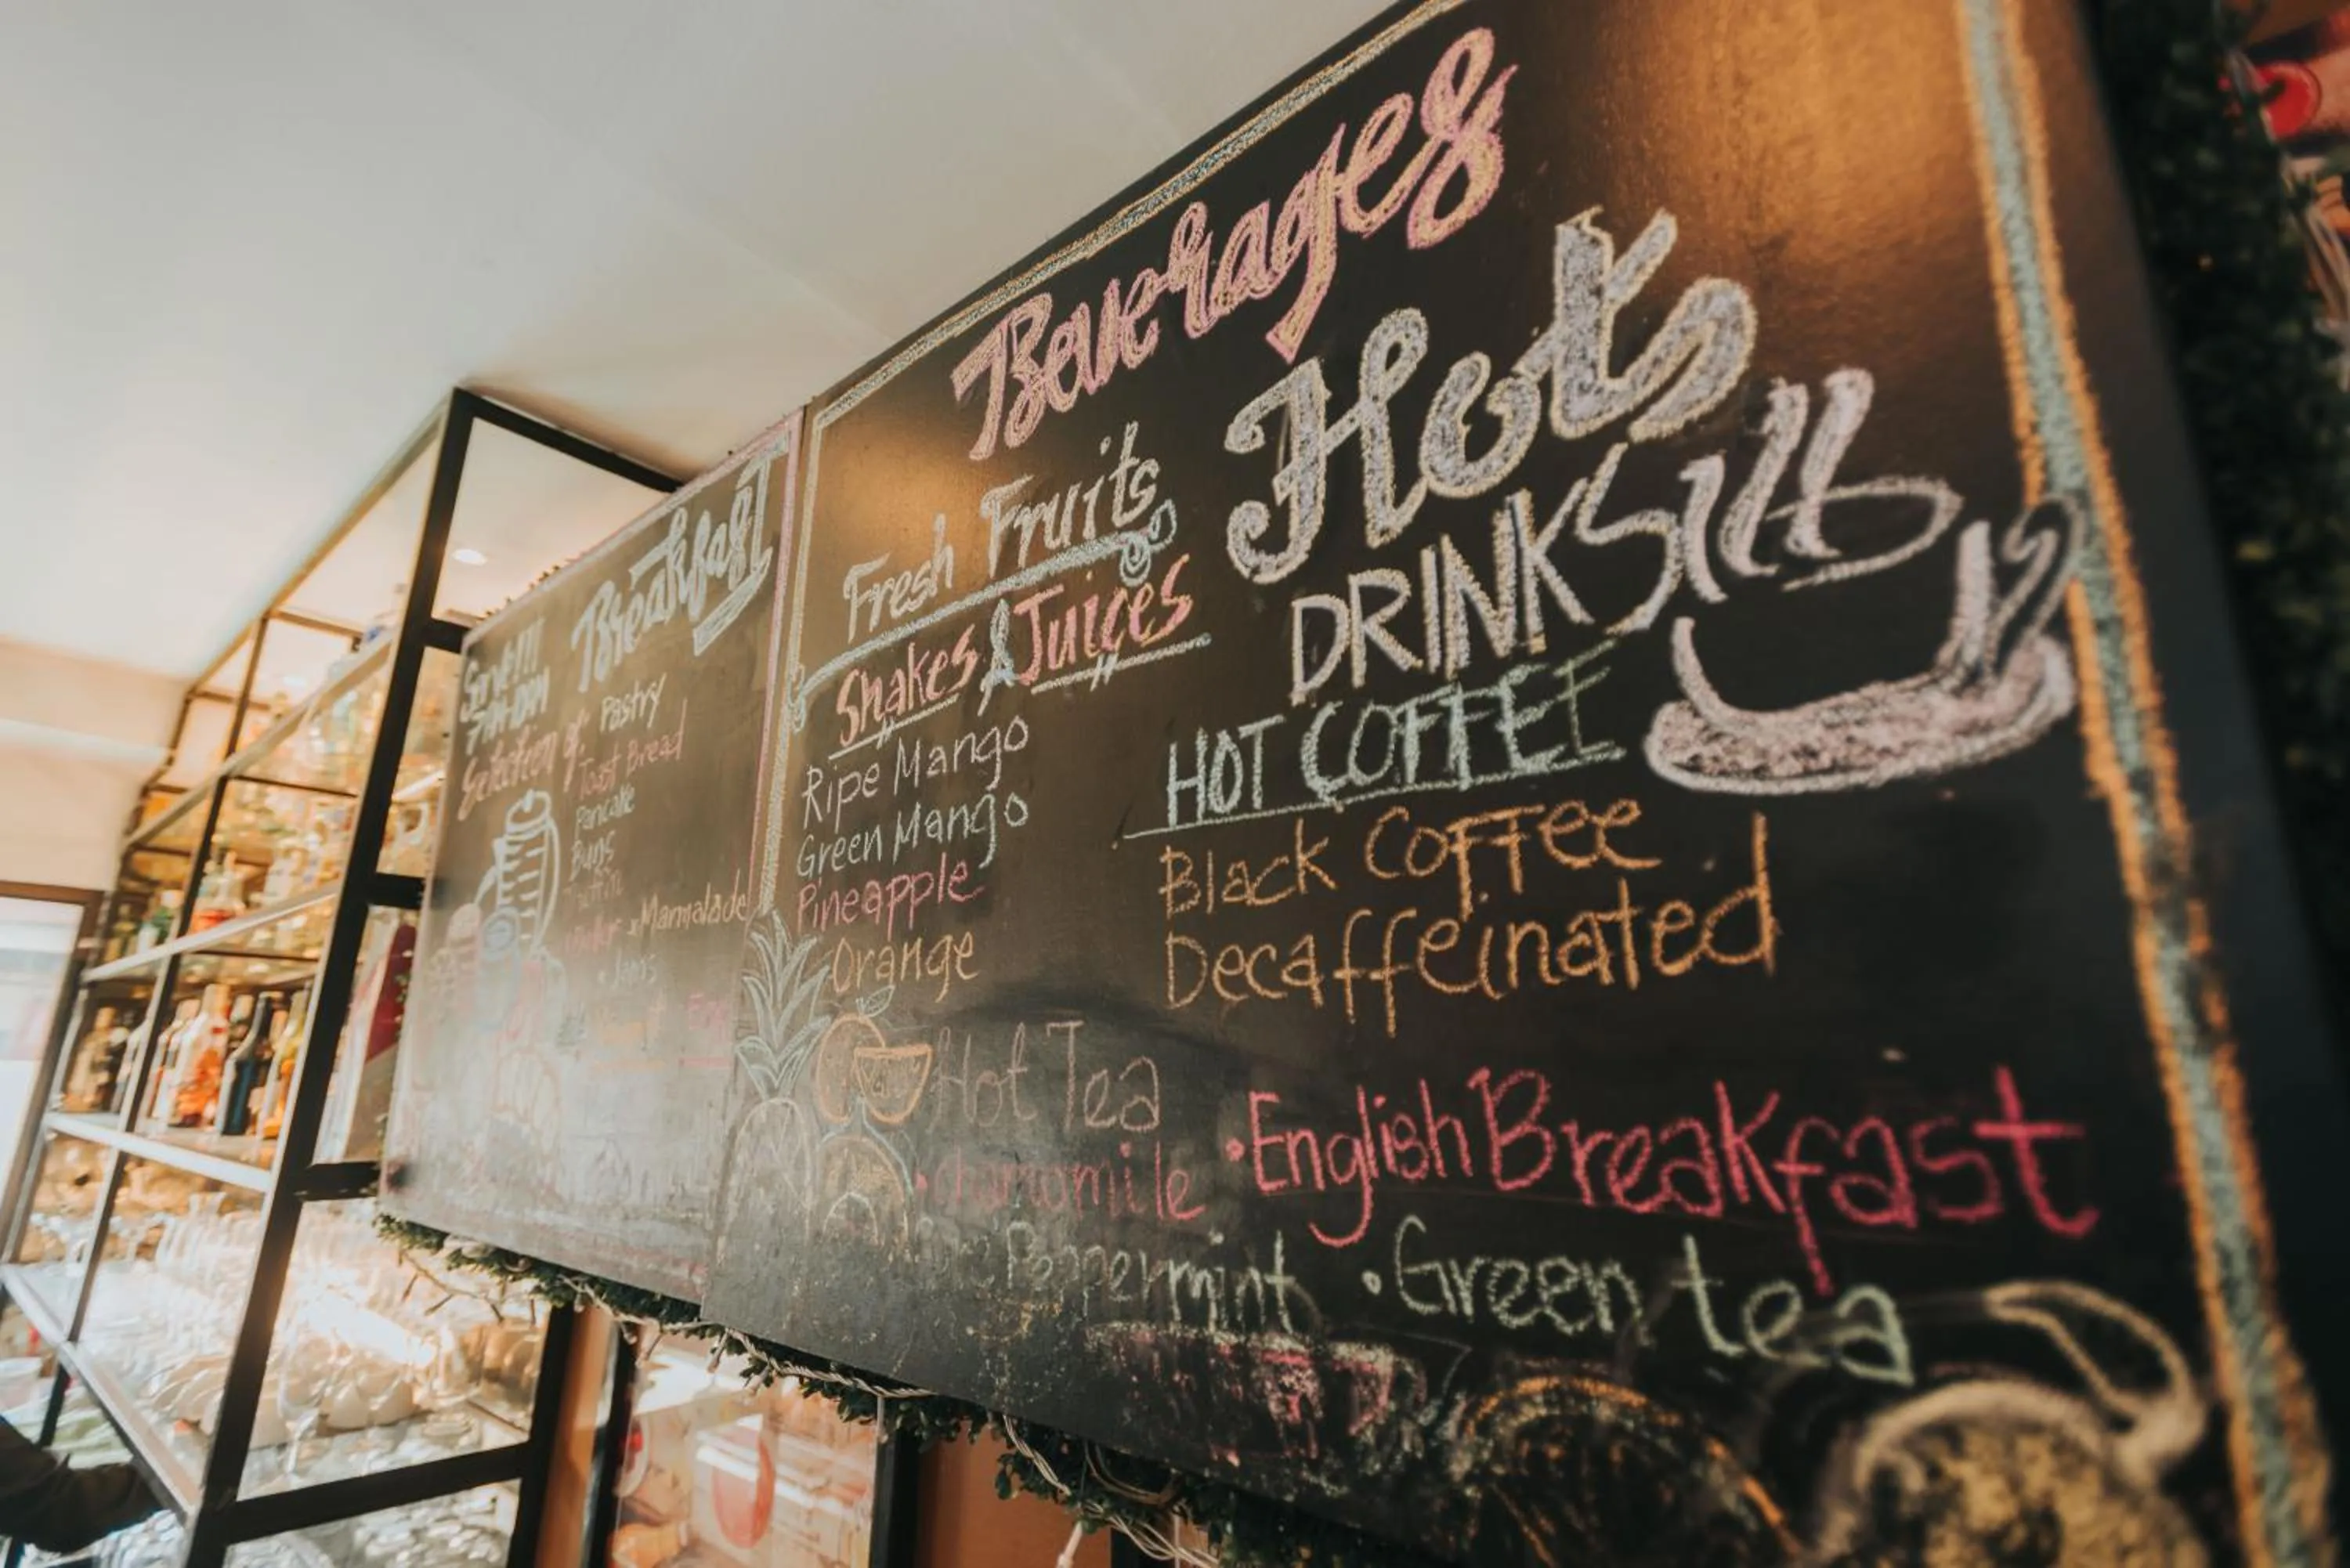 Breakfast
Serve!!!
Selection of
Pastry
Toast Bread
Pancake
Buns
Marmalade
Jams
Beverages
Fresh Fruits
Shakes & Juices
Ripe Mango
Green Mango
Pineapple
Orange
Hots
DRINKS
HOT COFFEE
Black Coffee
Decaffeinated
Hot Tea
• Chamomile • English Breakfast
Peppermint • Green tea